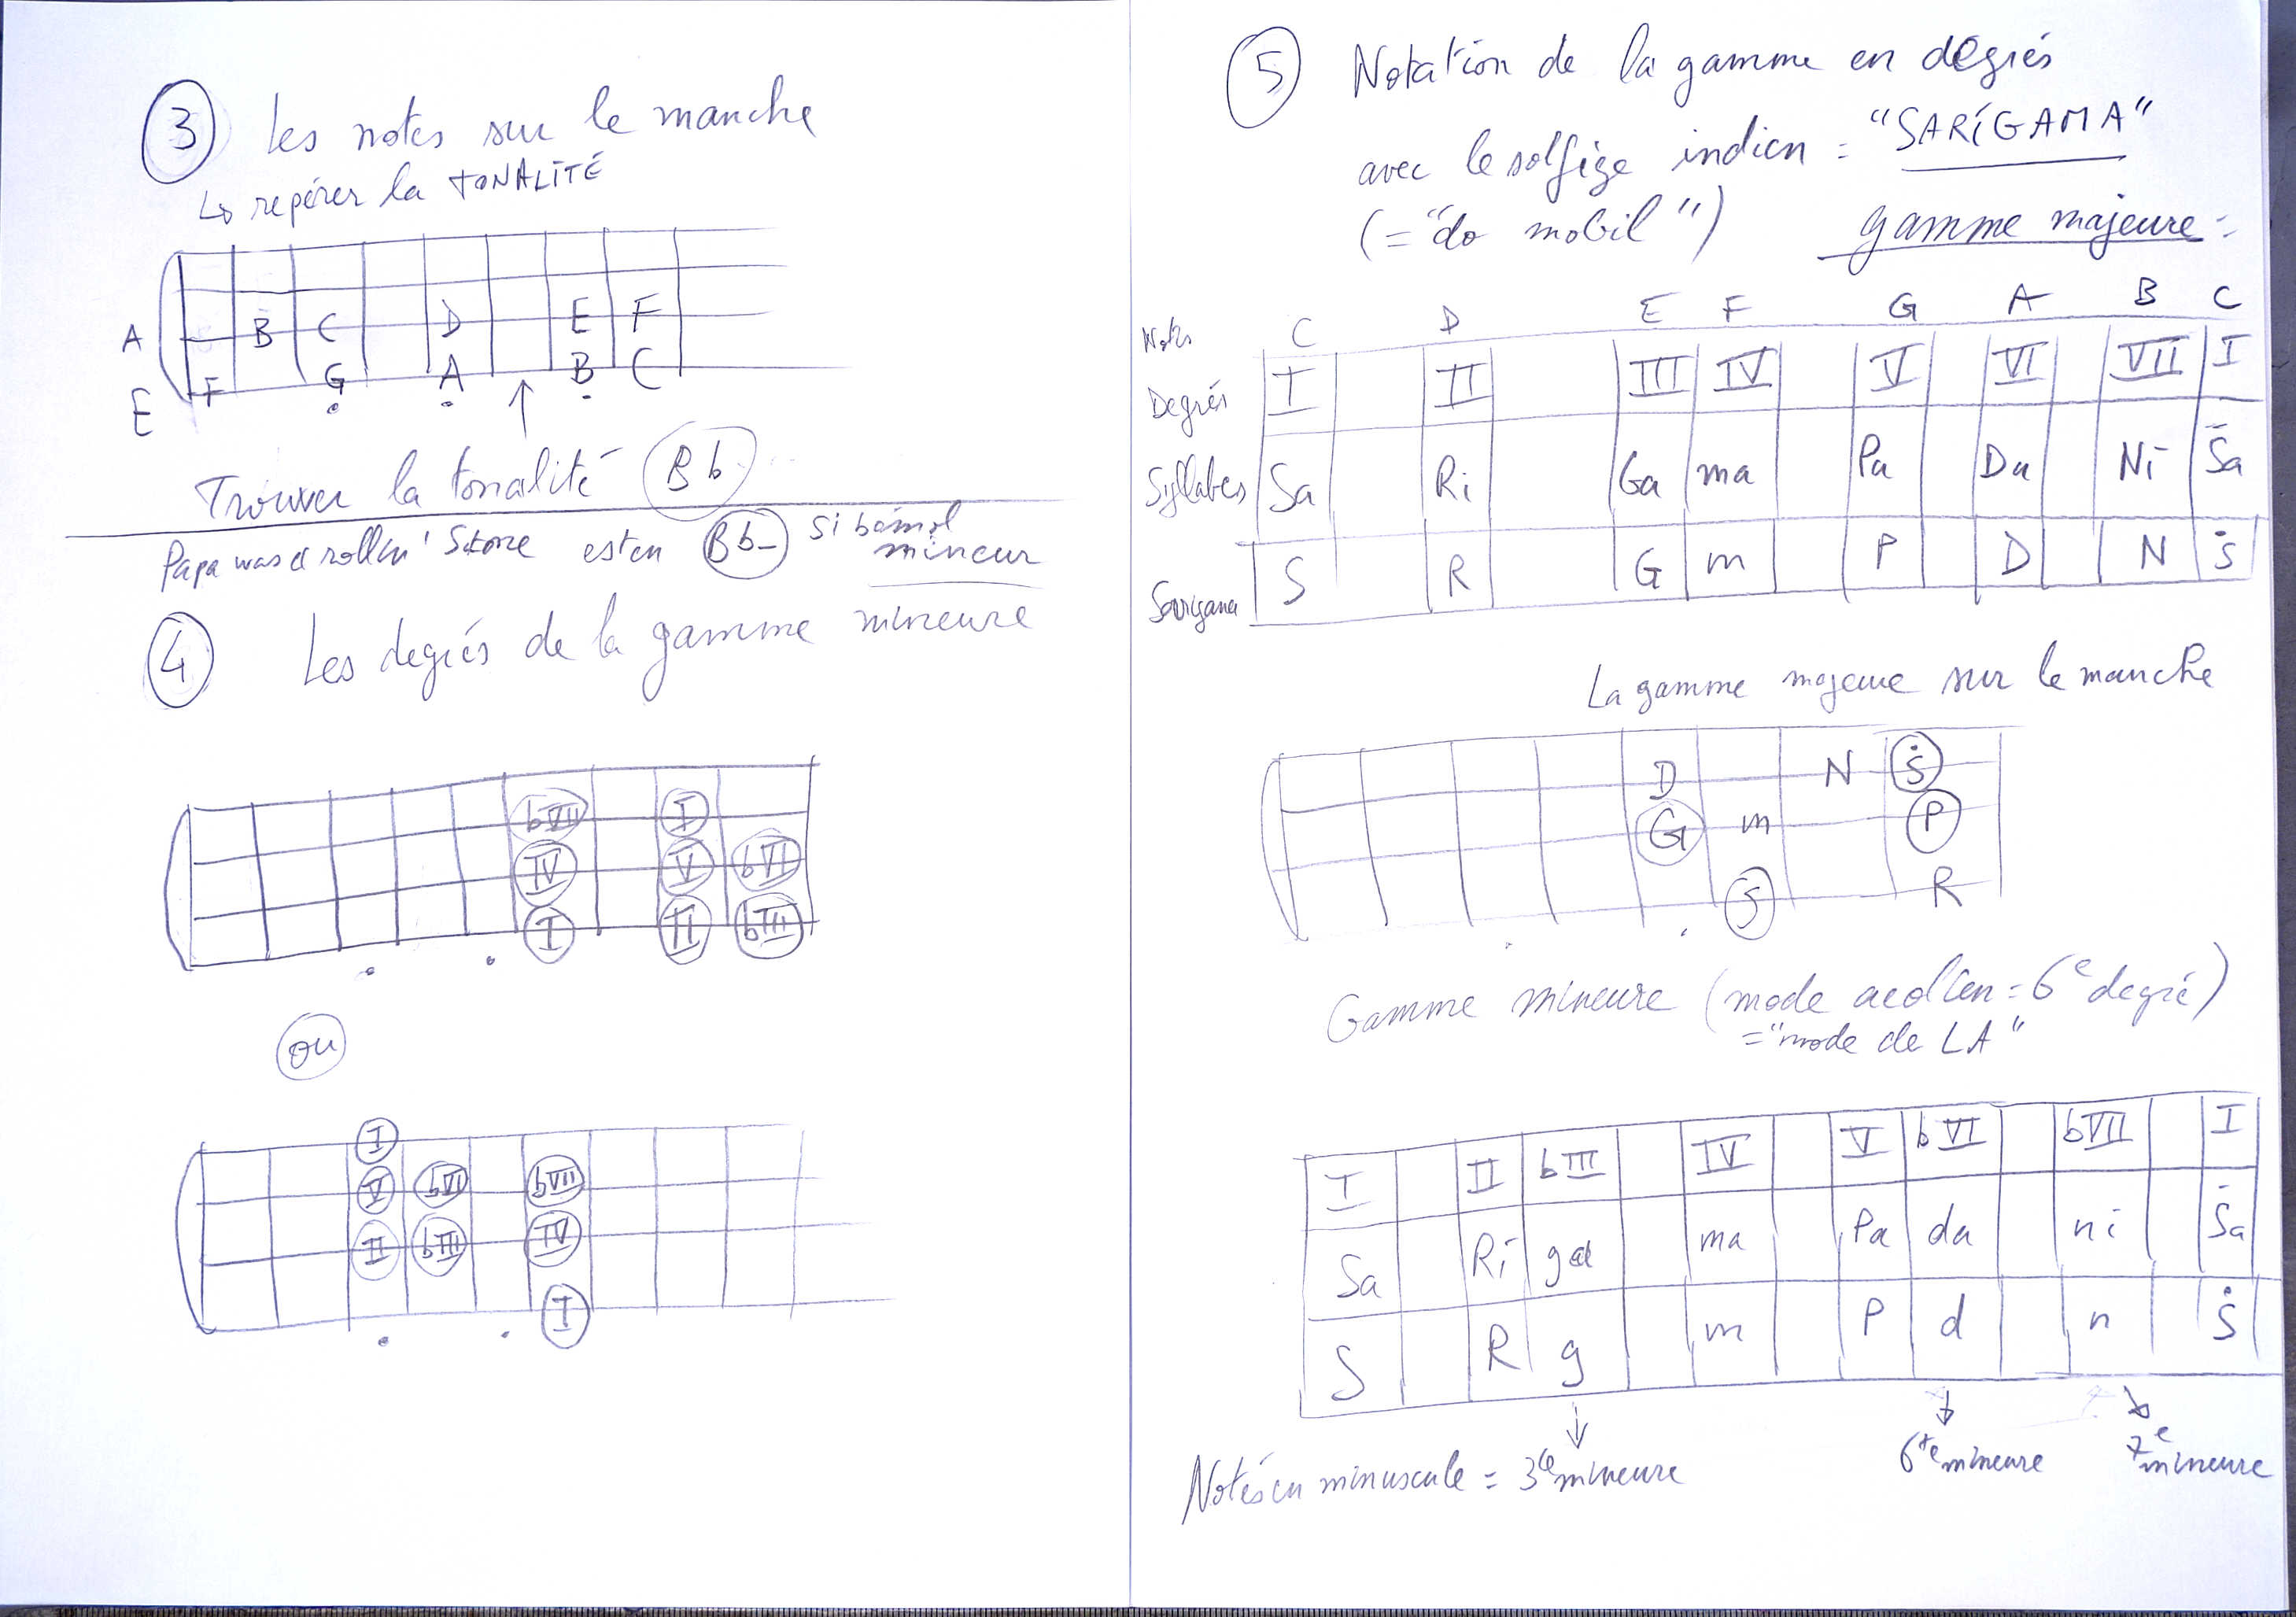 ③ Les notes sur le manche
↳ repérer la TONALITÉ
B C D E F
A
F G A B C
E
↑
Trouver la tonalité Bb
Papa was a rollin' Stone est en Bb- si bémol
mineur
④ Les degrés de la gamme mineure
bVII I
IV V bVI
I II bIII
ou
I
V bVI bVII
II bIII IV
I
⑤ Notation de la gamme en degrés
avec le solfège indien = "SARIGAMA"
(= "do mobil") gamme majeure :
Notes C D E F G A B C
Degrés I II III IV V VI VII I
Syllabes Sa Ri Ga ma Pa Da Ni Sa
Sarigama S R G m P D N Ṡ
La gamme majeure sur le manche
D N Ṡ
G m P
S R
Gamme mineure (mode aeolien = 6e degré)
= "mode de LA"
I II bIII IV V bVI bVII I
Sa Ri ga ma Pa da ni Sa
S R g m P d n Ṡ
Notés en minuscule = 3ce mineure 6te mineure 7e mineure